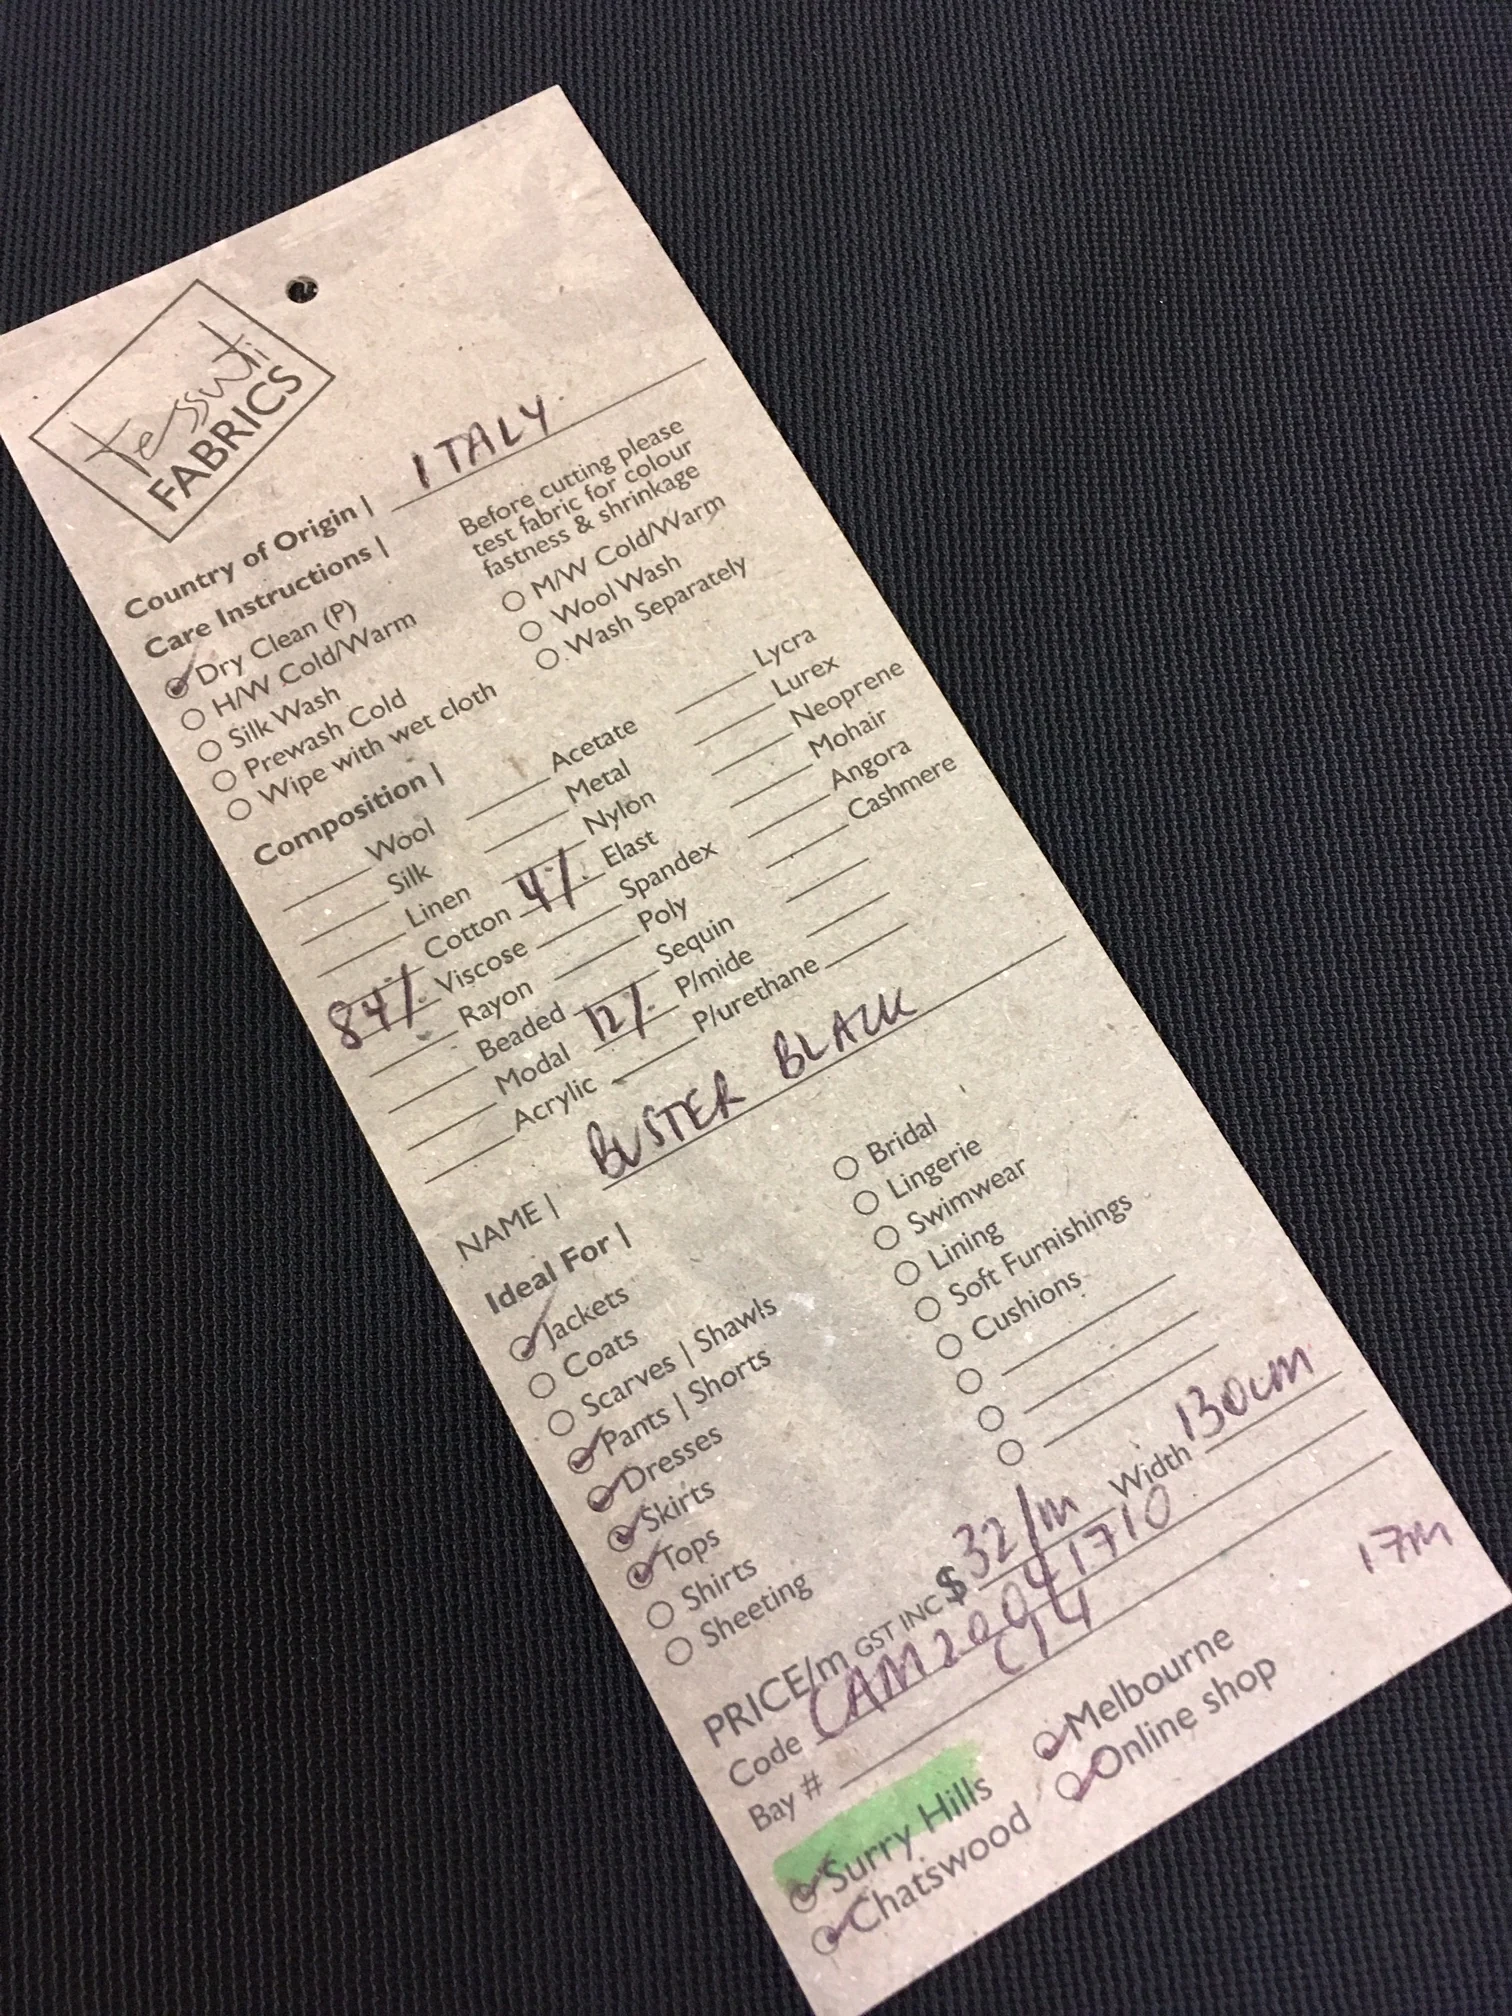 tessuti
FABRICS
Country of Origin | ITALY
Care Instructions |
Before cutting please
test fabric for colour
fastness & shrinkage
Dry Clean (P)
H/W Cold/Warm
Silk Wash
Prewash Cold
Wipe with wet cloth
M/W Cold/Warm
Wool Wash
Wash Separately
Composition |
Wool
Silk
Linen
Cotton
84% Viscose
Rayon
Beaded
Modal
Acrylic
Acetate
Metal
Nylon
4% Elast
Spandex
Poly
Sequin
12% P/mide
P/urethane
Lycra
Lurex
Neoprene
Mohair
Angora
Cashmere
NAME | BUSTER BLACK
Ideal For |
Jackets
Coats
Scarves | Shawls
Pants | Shorts
Dresses
Skirts
Tops
Shirts
Sheeting
Bridal
Lingerie
Swimwear
Lining
Soft Furnishings
Cushions
PRICE/m GST INC $32/m Width 130cm
Code CAM20041710
Bay # C14
17m
Surry Hills
Chatswood
Melbourne
Online shop